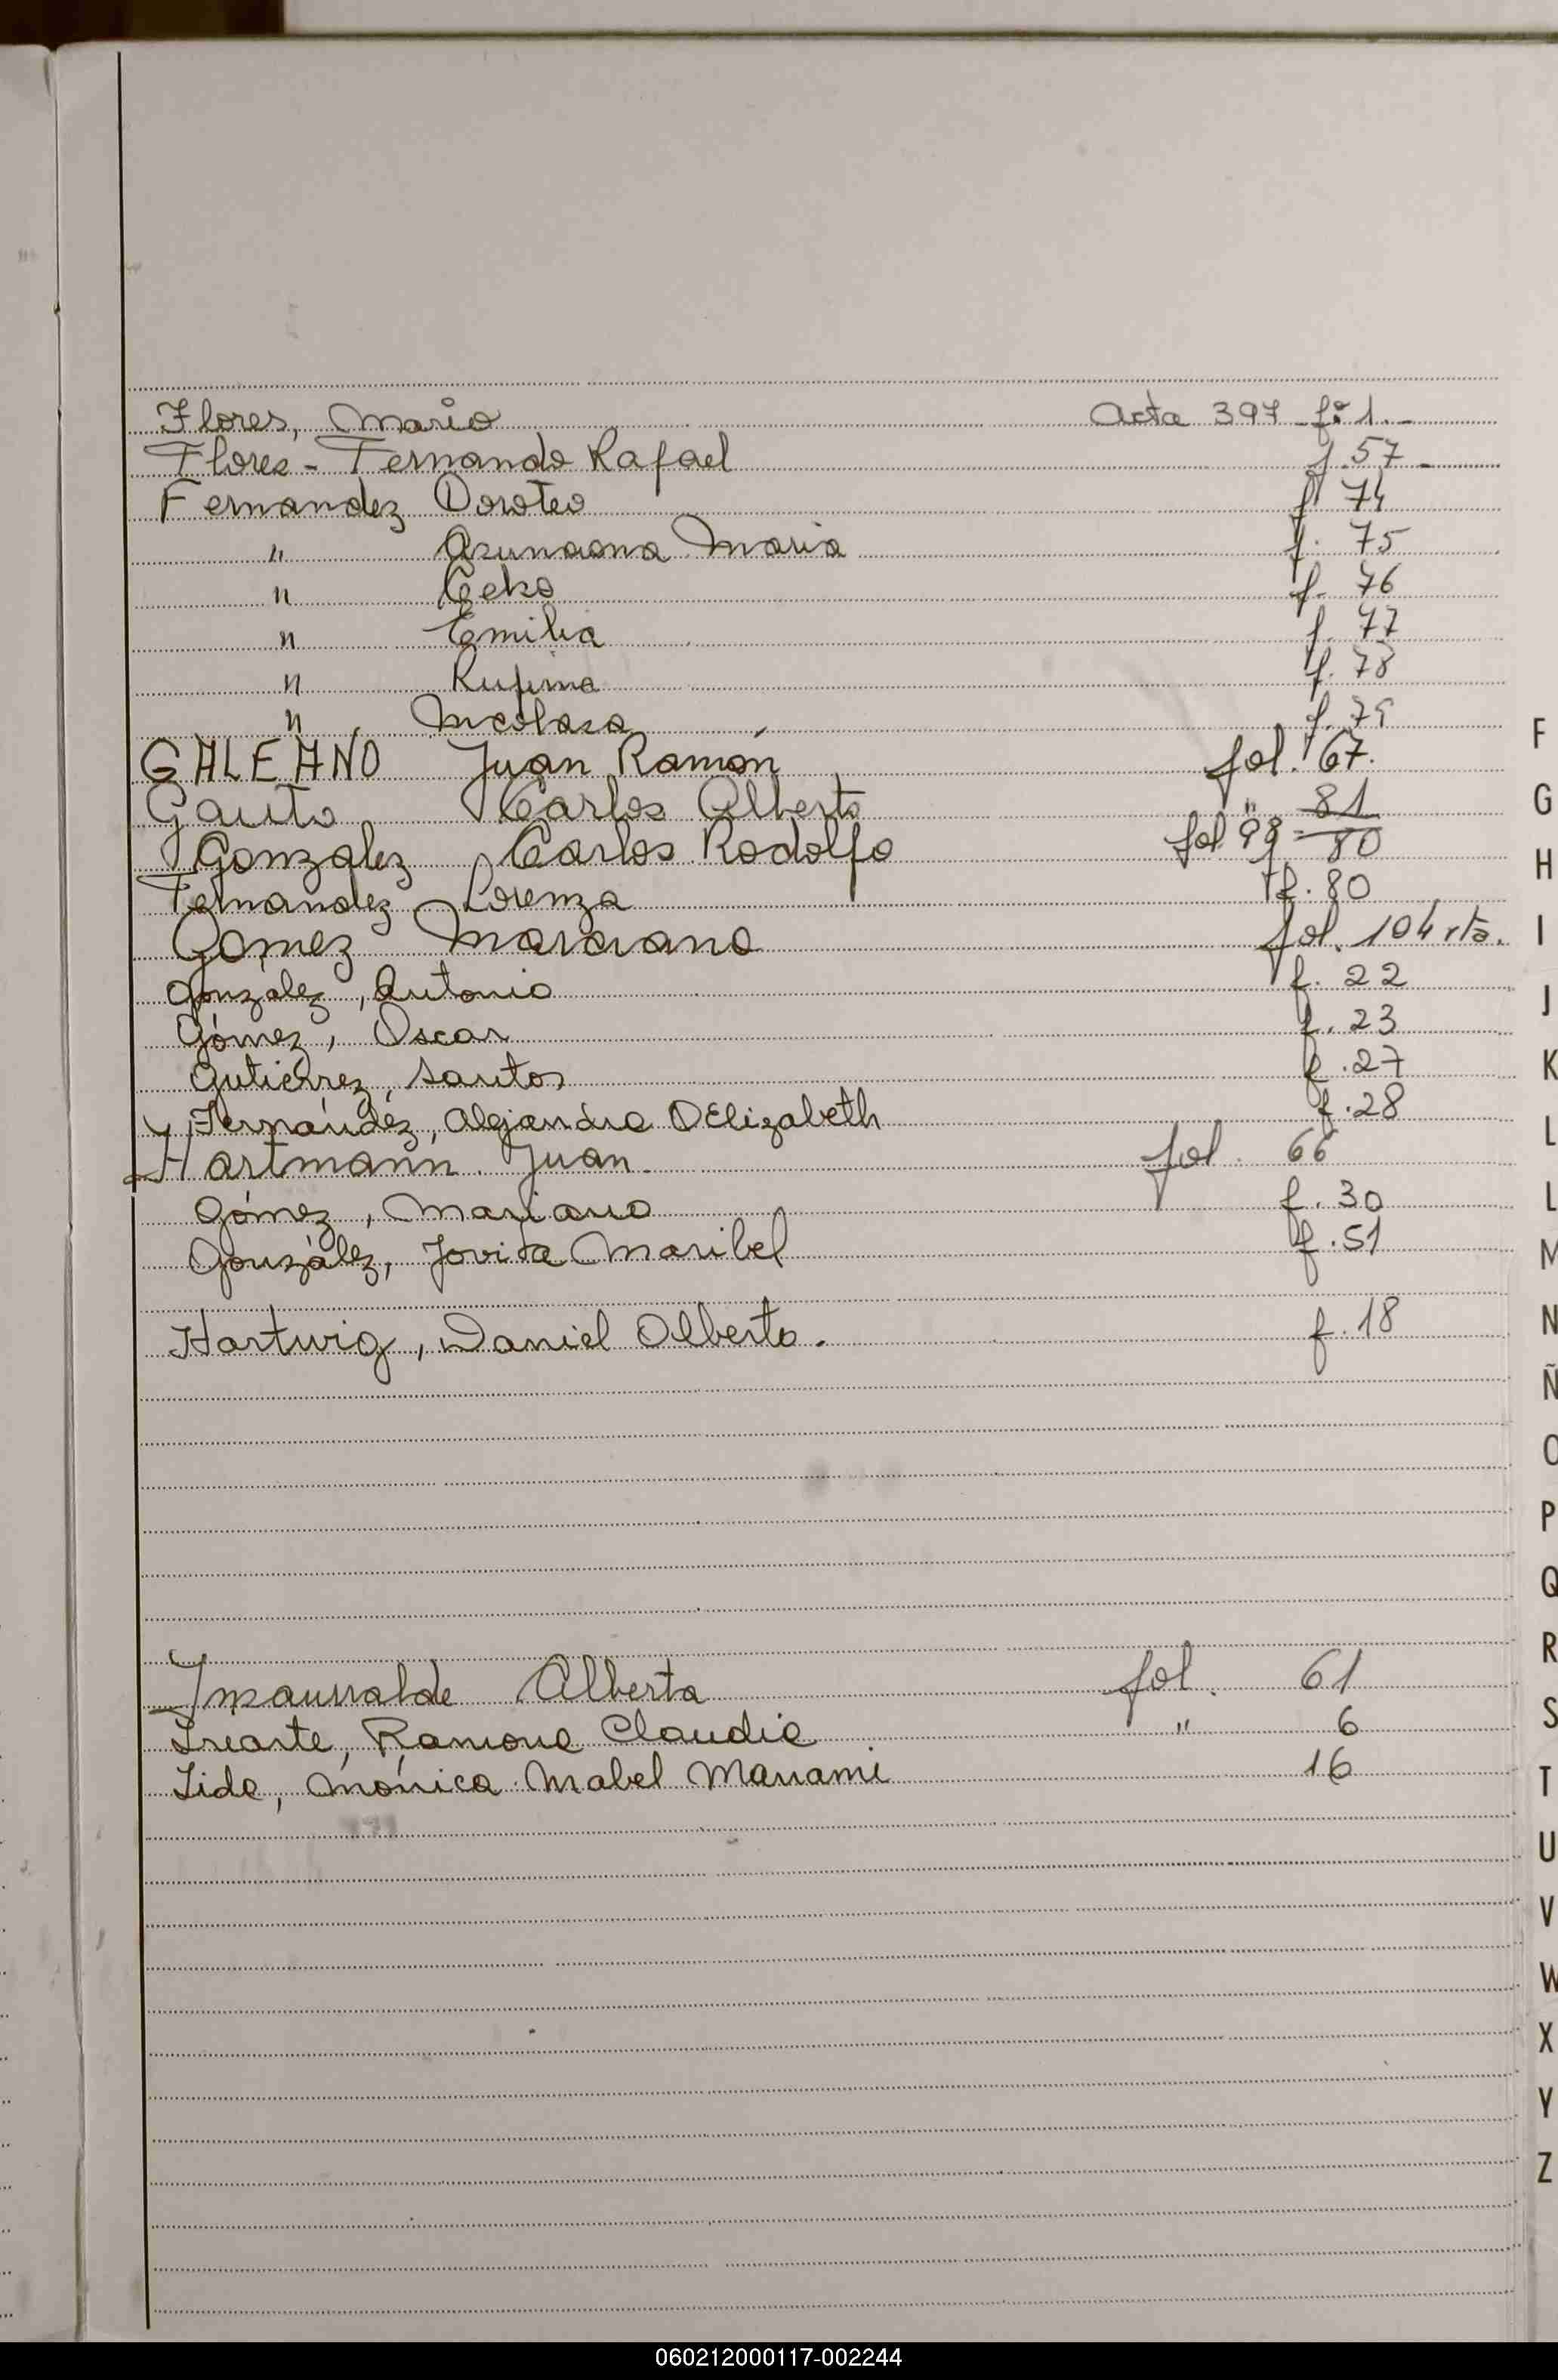 Flores, Mario Acta 397 fº 1.-
Flores - Fernando Rafael f. 57-
Fernandez Doroteo f 74
" Asunciona Maria f. 75
" Ceko f. 76
" Emilia f. 77
" Rufina f. 78
" Nicolasa f. 79
GALEANO Juan Ramón fol. 67.
Gauto Carlos Alberto " 81
Gonzalez Carlos Rodolfo fol 98 = 80
Fernandez Lorenza f. 80
Gomez Marciano fol. 104 vta.
González, Antonio f. 22
Gómez, Oscar f. 23
Gutiérrez, Santos f. 27
Fernández, Alejandra Elizabeth f. 28
Hartmann Juan. fol. 66
Gómez, Mariano f. 30
González, Jovita Maribel f. 51
Hartwig, Daniel Alberto. f. 18
Insaurralde Alberta fol. 61
Iriarte, Ramona Claudia " 6
Iida, Mónica Mabel Manami 16
F
G
H
I
J
K
L
L
M
N
Ñ
O
P
Q
R
S
T
U
V
W
X
Y
Z
060212000117-002244